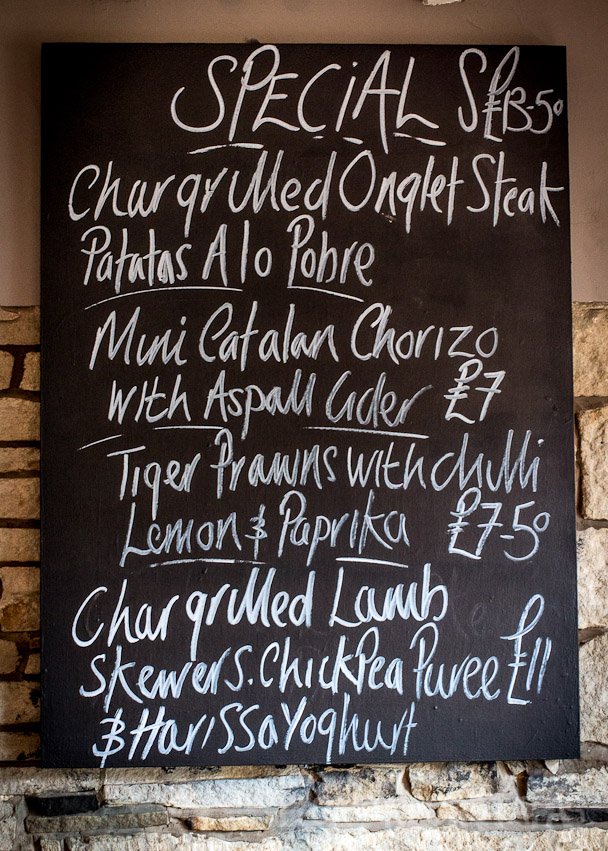 SPECIALS £13-50
Chargrilled Onglet Steak
Patatas A lo Pobre
Mini Catalan Chorizo
with Aspall Cider £7
Tiger Prawns with chilli
Lemon & Paprika £7-50
Chargrilled Lamb
Skewers. ChickPea Puree £11
& Harissa Yoghurt